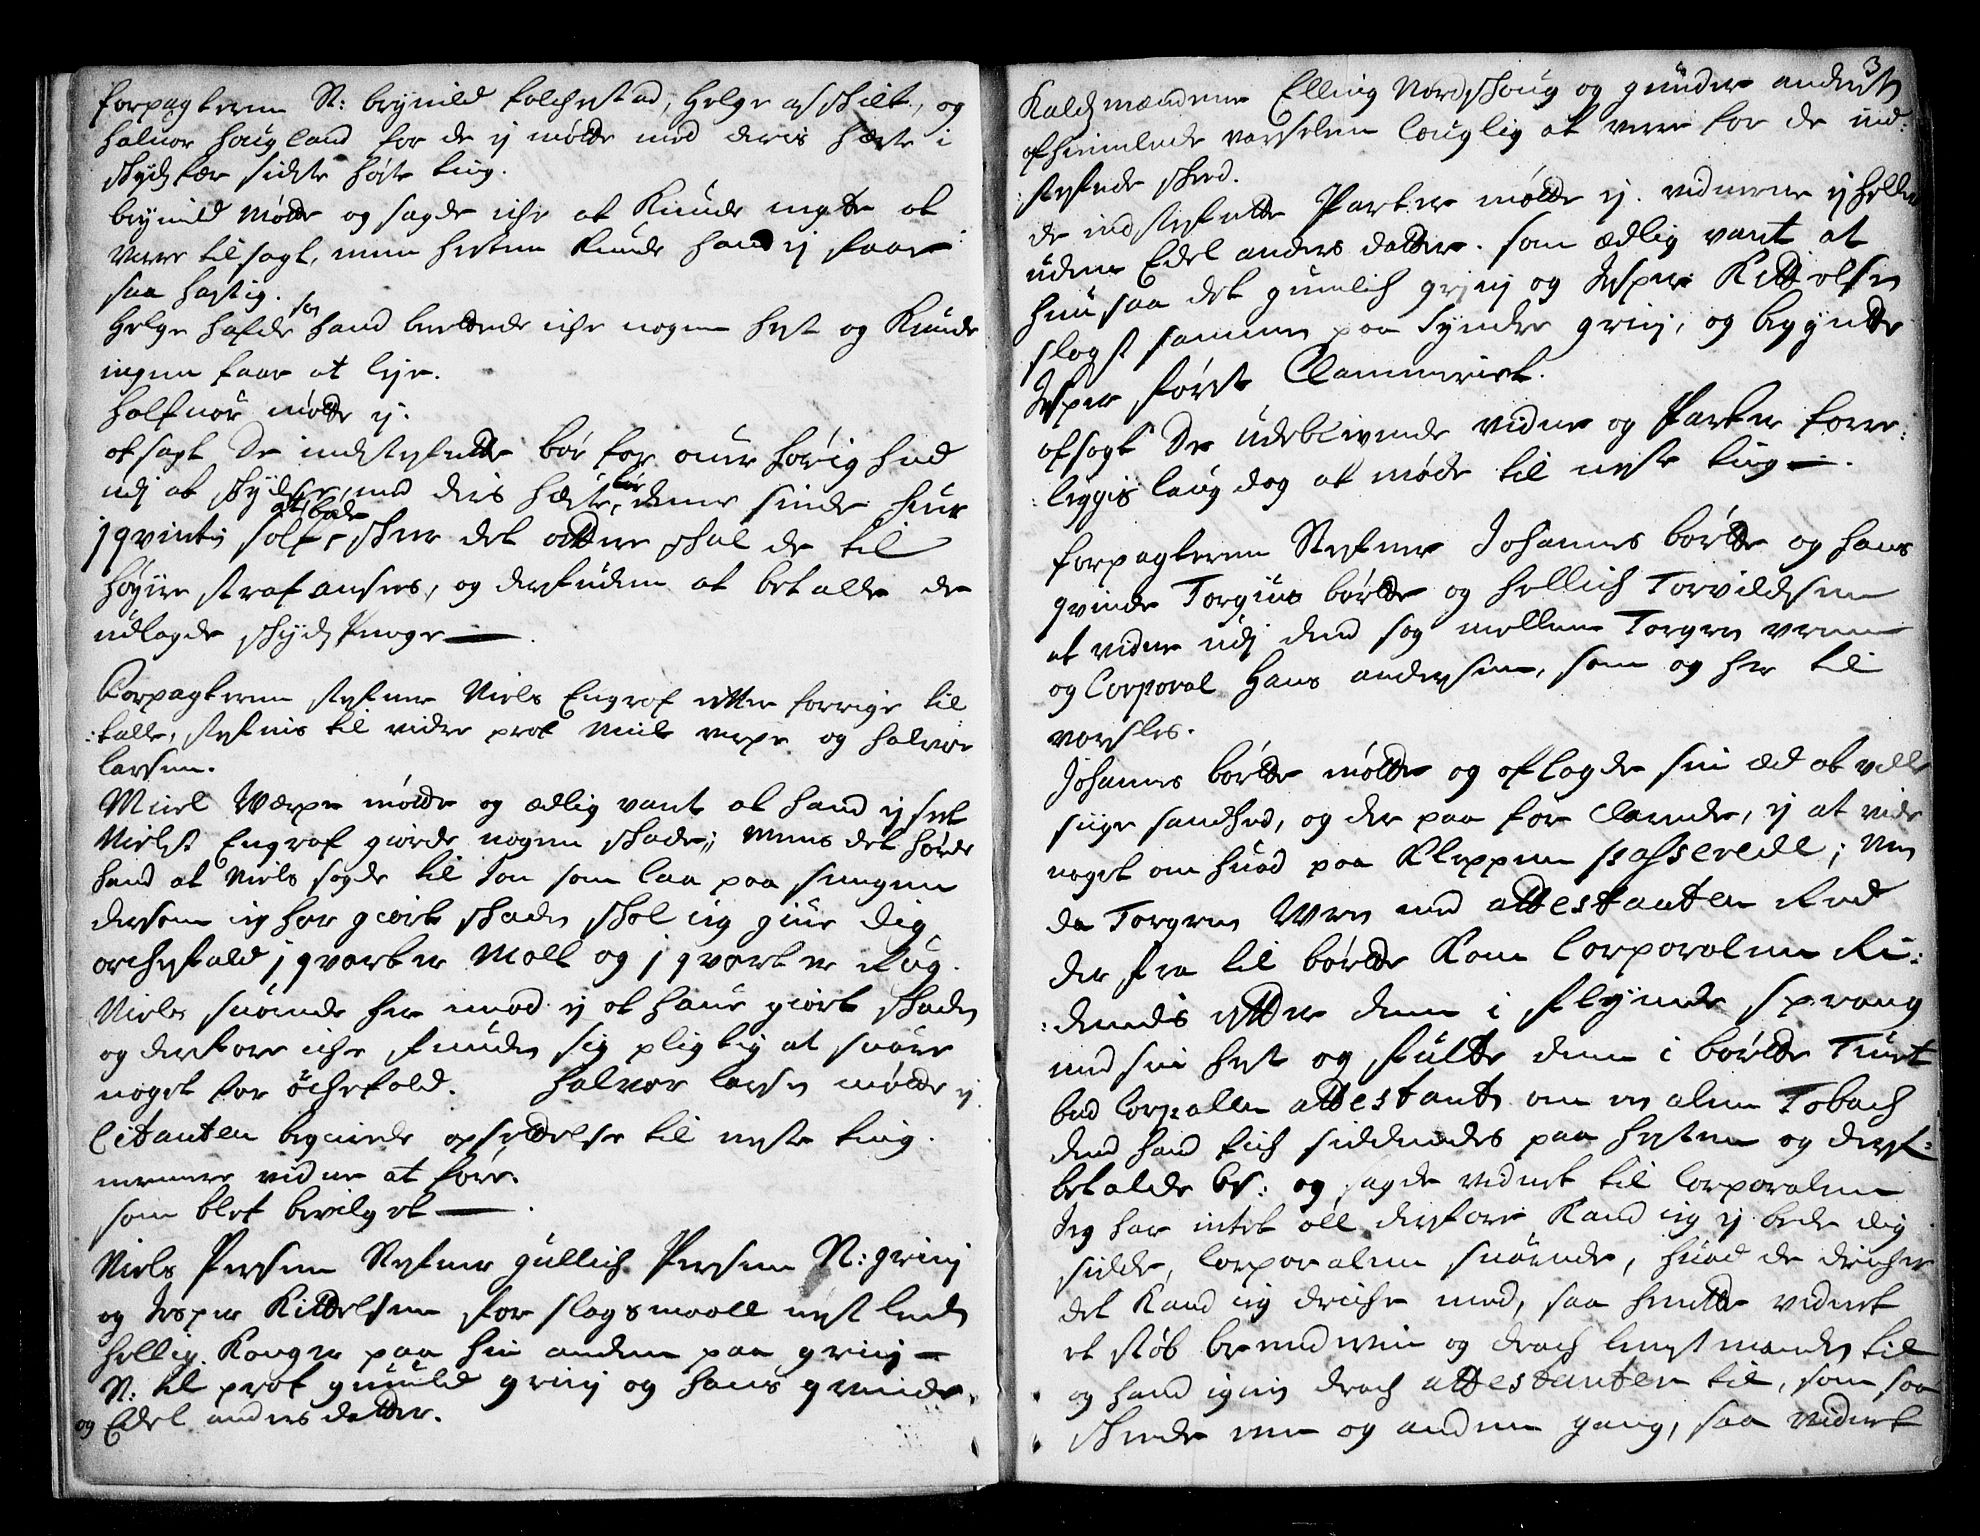 forpagteren St: brynild folchestad, Helge asshilt, og
halvor houglund for de ej mødte med deris hæste i
skydsfær sidste høste ting.
brynild mødte og sagde iche at kunde negte at
være tilsagt, men hesten kunde hand ej faae
saa hastig.
Helge hafde hand berettede iche nogen hest og kunde
ingen faae at leje.
halfuor mødte ej.
afsagt De indstefnte bør for ouerhørighed
udj at skydse med deris hæste, for denne sinde huer
at bøde
1 qvintin sølf, skeer det oftere skal de til
høyere straf ansees, og desuden at betalle de
udlagde skyds penge —.
Forpagteren stefner Niels Engraf etter forrige til
:talle, stefnis til vidne prof Miil verpe og halvor
larsen.
Miiel Værpe mødte og ædlig vant at hand ej saae
Niels Engraf giorde nogen skade; mens det hørde
hand at Niels sagde til Jon som laa paa sengen
dersom jeg har giort skade skal jeg giue dig
orchefald 1 qvarter Malt og 1 qvarter Rug.
Niels suarede her imod ej at haue giort skade
og derfore iche funden sig pligtig at suare
noget for öchefald. halvor larsen mødte ej
Citanten begierede opsettelse til neste ting.
nermere vidne at føre.
som blef bevilget —.
Niels Persen Stefner gullich Persen N: grinj
og Jesper Kittelsen for slagsmaall nestleden
hellig Konger paa hin anden paa grinj —
N: til prof gunild grinj og hans qvinde
og Edel andersdatter.
3
Kaldsmændene Elling Nordshoug og gunder anders
afhiemlede varselen louglig at være for de ind:
:stefnte skeed.
de indstefnte Parter mødte ej. vidnerne ej heller
uden Edel anders datter. som ædlig vant at
hun saa det gunlich grinj og Jesper Kittelsen
slogst sammen paa Syndre grinj, og begyndte
Jesper først Clammeriet.
afsagt De udeblivende vidner og Parter forre:
:leggis laugdag at møde til neste ting —.
forpagteren Stefner Johannes børte og hans
qvinde Torgiuus børte og hellich Torvildsen
at vidne udj dend sag mellem Torgrim vreen
og Corporal Hans andersen, som og her til
varsles.
Johannes børte mødte og aflagde sin æd at ville
siige sandhed, og der paa for clarede, ej at vide
noget om huad paa Kleppen passerede; Men
da Torgrim Wreen med attestanten Reed
der fra til børte kom Corporalen Ri:
:dendis etter dem i flyende sprang
med sin hest og fulte dem i børte Tunet
bad Corpralen attestanten om en alen Tobach
dend hand fich siddendes paa hesten og derf:
betalde 6 s: og sagde vidnet til Corporalen
Jeg har intet øll derfore kand jeg ej bede dig
sidde, Corporalen suarede, huad de dricher
det kand jeg driche med, saa hentte vidnet
et støb brendewin og drach lensmanden til
og hand igien drach attestanten til, som saa
skeede een og anden gang, saa vidnet